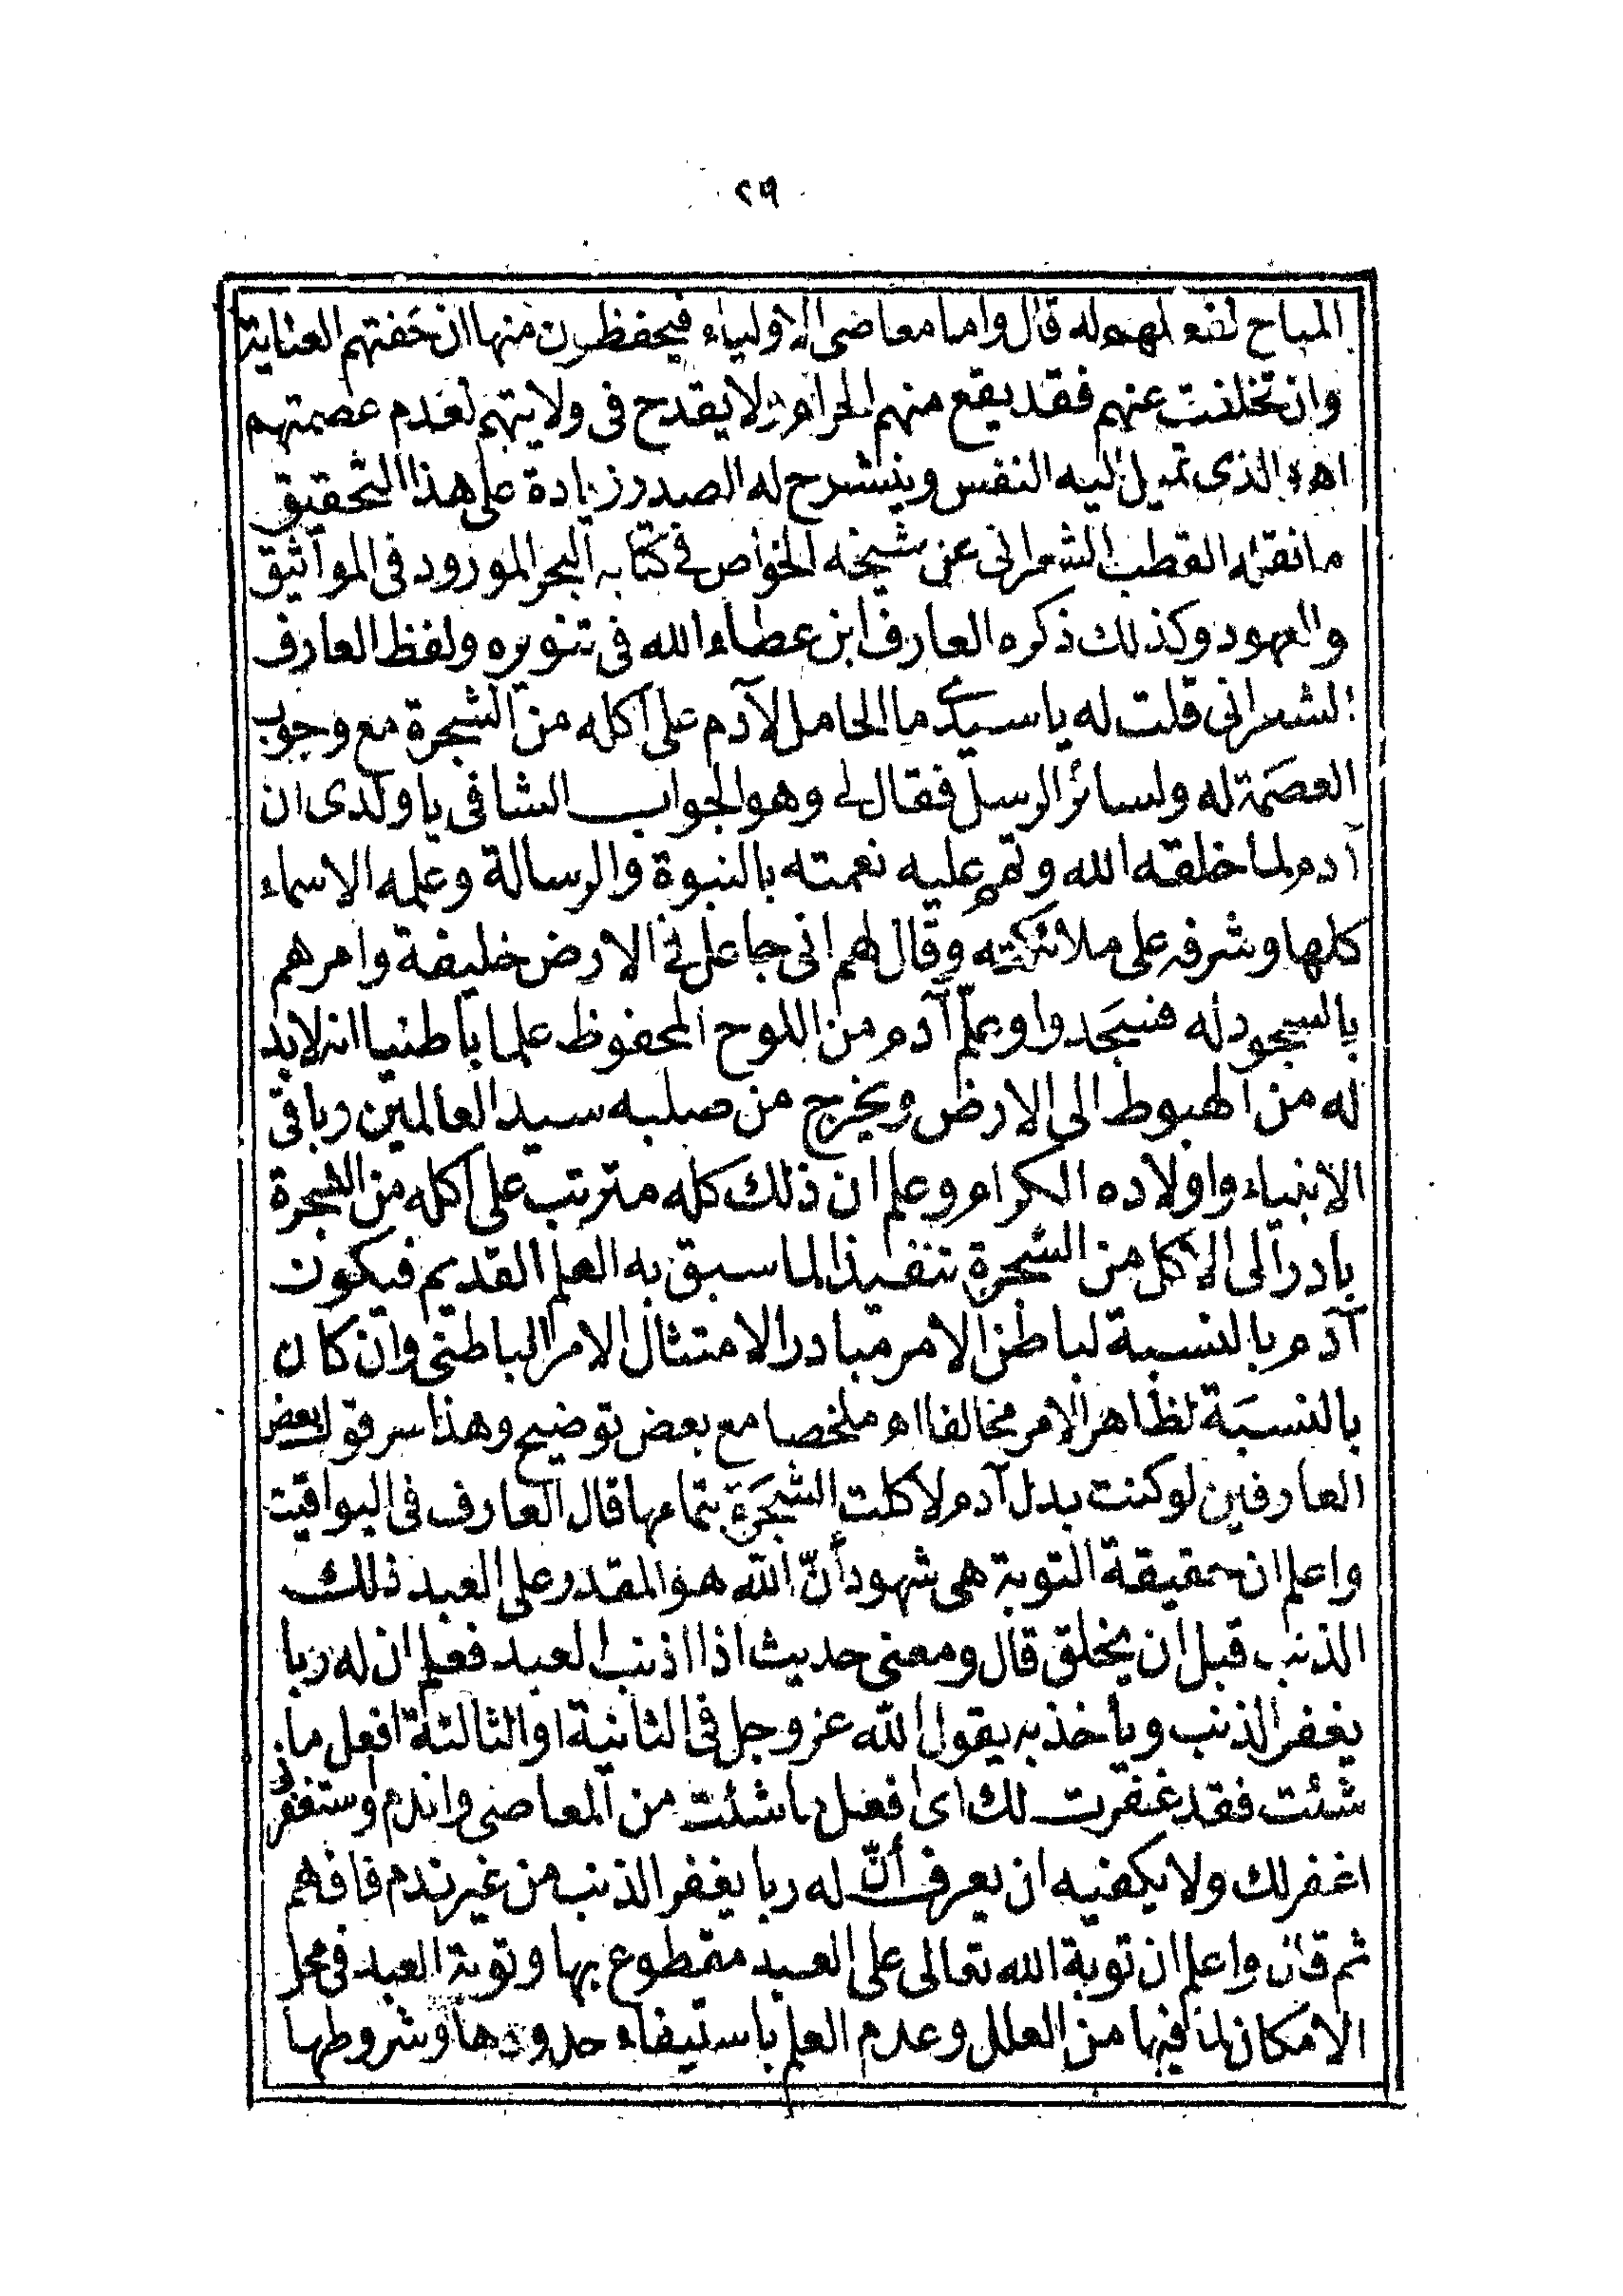 ٢٩
المباح لهوله قال واما معاصى الاولياء فيحفظون منها ان حفتهم العناية
وان تخلفت عنهم فقد يقع منهم الحرام ولا يقدح فى ولايتهم لعدم عصمتهم
اهـ والذى تميل اليه النفس وينشرح له الصدر زيادة على هذا التحقيق
ما نقله القطب الشعرانى عن شيخه الخواص فى كتابه البحر المورود فى المواثيق
والعهود وكذلك ذكره العارف ابن عطاء الله فى تنويره ولفظ العارف
الشعرانى قلت له يا سيدى ما الحامل لآدم على اكله من الشجرة مع وجوب
العصَمة له ولسائر الرسل فقال لى وهو الجواب الشافى يا ولدى ان
آدم لما خلقه الله وتمم عليه نعمته بالنبوة والرسالة وعلمه الاسماء
كلها وشرفه على ملائكته وقال لهم انى جاعل فى الارض خليفة وامرهم
بالسجود له فسَجدوا وعلم آدم من اللوح المحفوظ علما باطنيا انه لابد
له من الهبوط الى الارض ويخرج من صلبه سيد العالمين وباقى
الانبياء واولاده الكرام وعلم ان ذلك كله مترتب على اكله من الشجرة
بادر الى الاكل من الشجرة تنفيذا لما سبق به العلم القديم فيكون
آدم بالنسبة لباطن الامر مبادرا لامتثال الامر الباطنى وان كان
بالنسبَة لظاهر الامر مخالفا اهـ ملخصا مع بعض توضيح وهذا سر قول بعض
العارفين لو كنت بدل آدم لاكلت الشجَرة بتمامها قال العارف فى اليواقيت
واعلم ان حقيقة التوبة هى شهود أنّ الله هو المقدر على العبد ذلك
الذنب قبل ان يخلق قال ومعنى حديث اذا اذنب العبد فعلم ان له ربا
يغفر الذنب ويأخذ به يقول الله عز وجل فى الثانية او الثالثة افعل ما
شئت فقد غفرت لك اى افعل ما شئت من المعاصى واندم واستغفرنى
اغفر لك ولا يكفيه ان يعرف أنّ له ربا يغفر الذنب من غير ندم فافهم
ثم قال واعلم ان توبة الله تعالى على العبد مقطوع بها وتوبة العبد فى محل
الامكان لما فيها من العلل وعدم العلم باستيفاء حدودها وشروطها